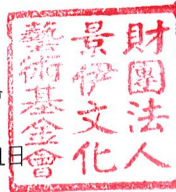 財團法人
景伊文化
藝術基金會
日